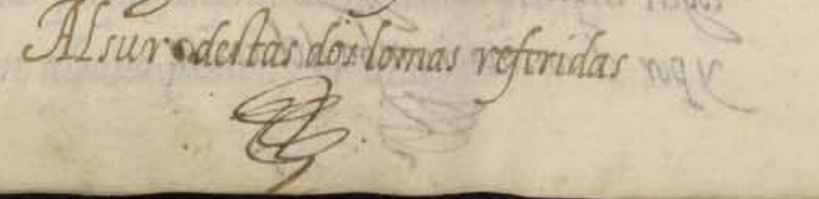 Al sur destas dos lomas referidas